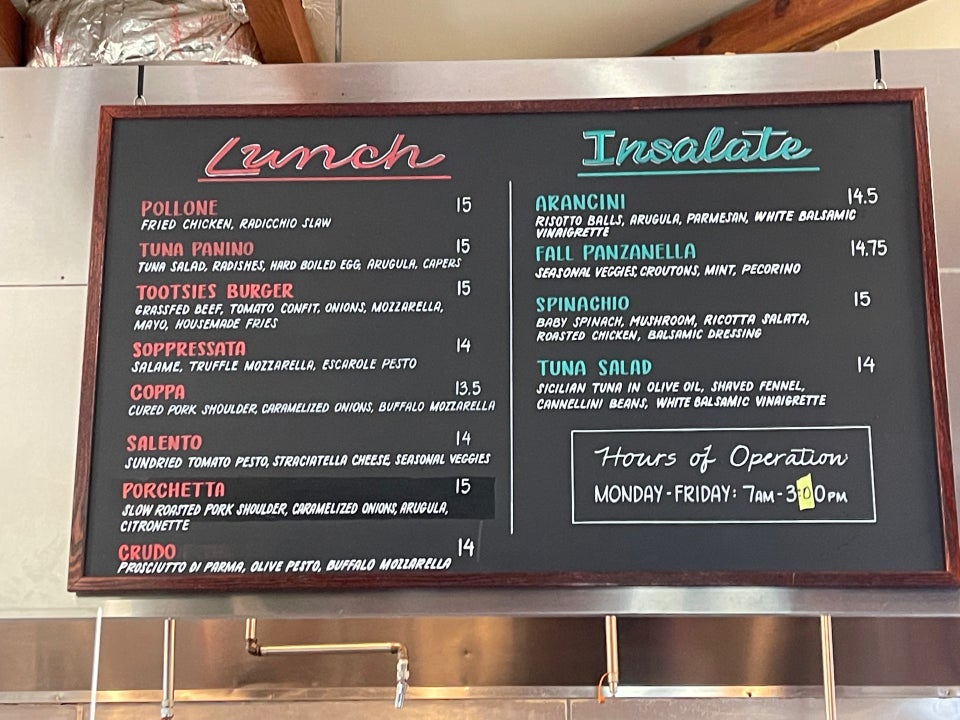 Lunch
POLLONE 15
FRIED CHICKEN, RADICCHIO SLAW
TUNA PANINO 15
TUNA SALAD, RADISHES, HARD BOILED EGG, ARUGULA, CAPERS
TOOTSIES BURGER 15
GRASSFED BEEF, TOMATO CONFIT, ONIONS, MOZZARELLA,
MAYO, HOUSEMADE FRIES
SOPPRESSATA 14
SALAME, TRUFFLE MOZZARELLA, ESCAROLE PESTO
COPPA 13.5
CURED PORK SHOULDER, CARAMELIZED ONIONS, BUFFALO MOZZARELLA
SALENTO 14
SUNDRIED TOMATO PESTO, STRACIATELLA CHEESE, SEASONAL VEGGIES
PORCHETTA 15
SLOW ROASTED PORK SHOULDER, CARAMELIZED ONIONS, ARUGULA,
CITRONETTE
CRUDO 14
PROSCIUTTO DI PARMA, OLIVE PESTO, BUFFALO MOZZARELLA
Insalate
ARANCINI 14.5
RISOTTO BALLS, ARUGULA, PARMESAN, WHITE BALSAMIC
VINAIGRETTE
FALL PANZANELLA 14.75
SEASONAL VEGGIES, CROUTONS, MINT, PECORINO
SPINACHIO 15
BABY SPINACH, MUSHROOM, RICOTTA SALATA,
ROASTED CHICKEN, BALSAMIC DRESSING
TUNA SALAD 14
SICILIAN TUNA IN OLIVE OIL, SHAVED FENNEL,
CANNELLINI BEANS, WHITE BALSAMIC VINAIGRETTE
Hours of Operation
MONDAY-FRIDAY: 7AM-3:00PM